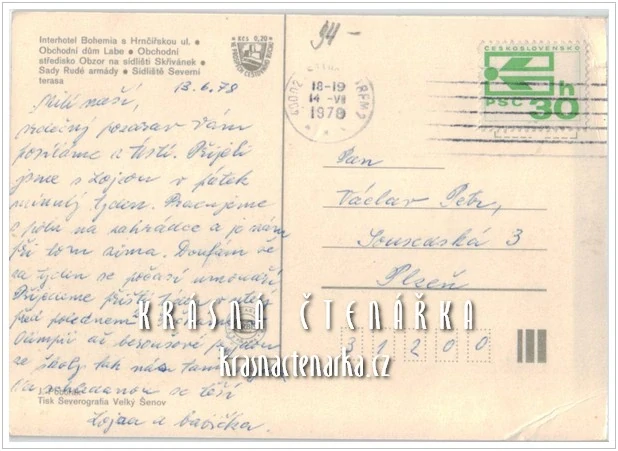 Interhotel Bohemia s Hrnčířskou ul. •
Obchodní dům Labe • Obchodní
středisko Obzor na sídlišti Skřivánek •
Sady Rudé armády • Sídliště Severní
terasa
Kčs 0,20
94 -
13.6.78
Milí naší,
srdečný pozdrav Vám
posíláme z Ústí. Přijeli
jsme s Lojzou v pátek
minulý týden. Pracujeme
z půlu na zahrádce a je nám
při tom zima. Doufám že
za týden se počasí umoudří,
Přijedeme příští týden v úterý
před polednem
Olumpii až
ze školy tak nás tam
Na shledanou se těší
Lojza a babička.
Tisk Severografia Velký Šenov
18-19
14.-VI
1978
ČESKOSLOVENSKO
h
PSČ 30
Pan
Václav Petr,
Sousedská 3
Plzeň
3 1 2 0 0
KRÁSNÁ ČTENÁŘKA
krasnactenarka.cz